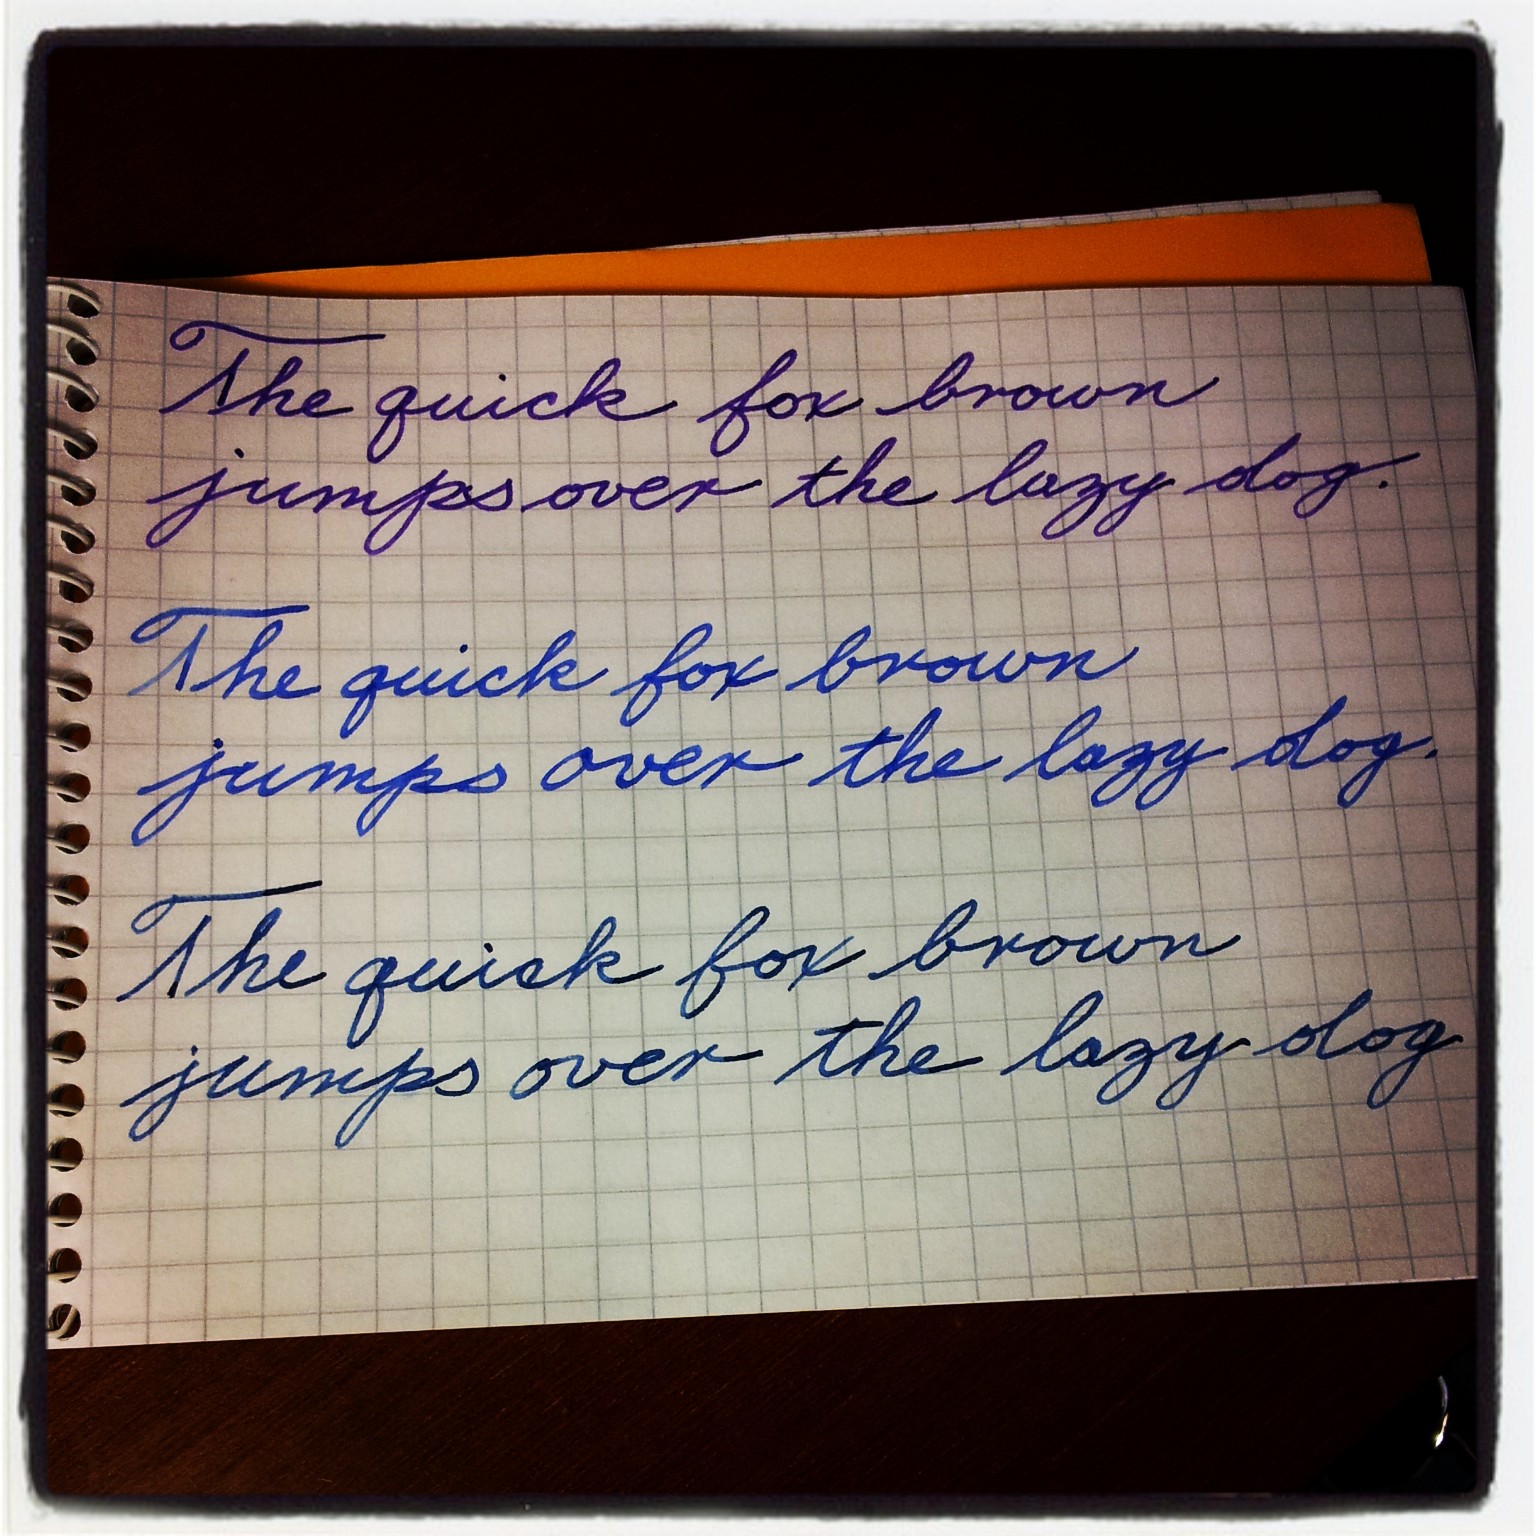 The quick fox brown
jumps over the lazy dog.
The quick fox brown
jumps over the lazy dog.
The quick fox brown
jumps over the lazy dog